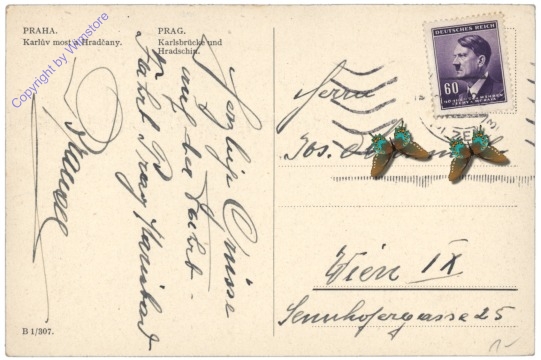 PRAHA.
Karlův most a Hradčany.
PRAG.
Karlsbrücke und
Hradschin.
Copyright by Wignstore
Herzliche Grüsse
auf der Fahrt
Fahrt Prag Karlsbad
DEUTSCHES REICH
60
Herrn
Jos.
Wien IX
Sennhofergasse 25
B 1/307.